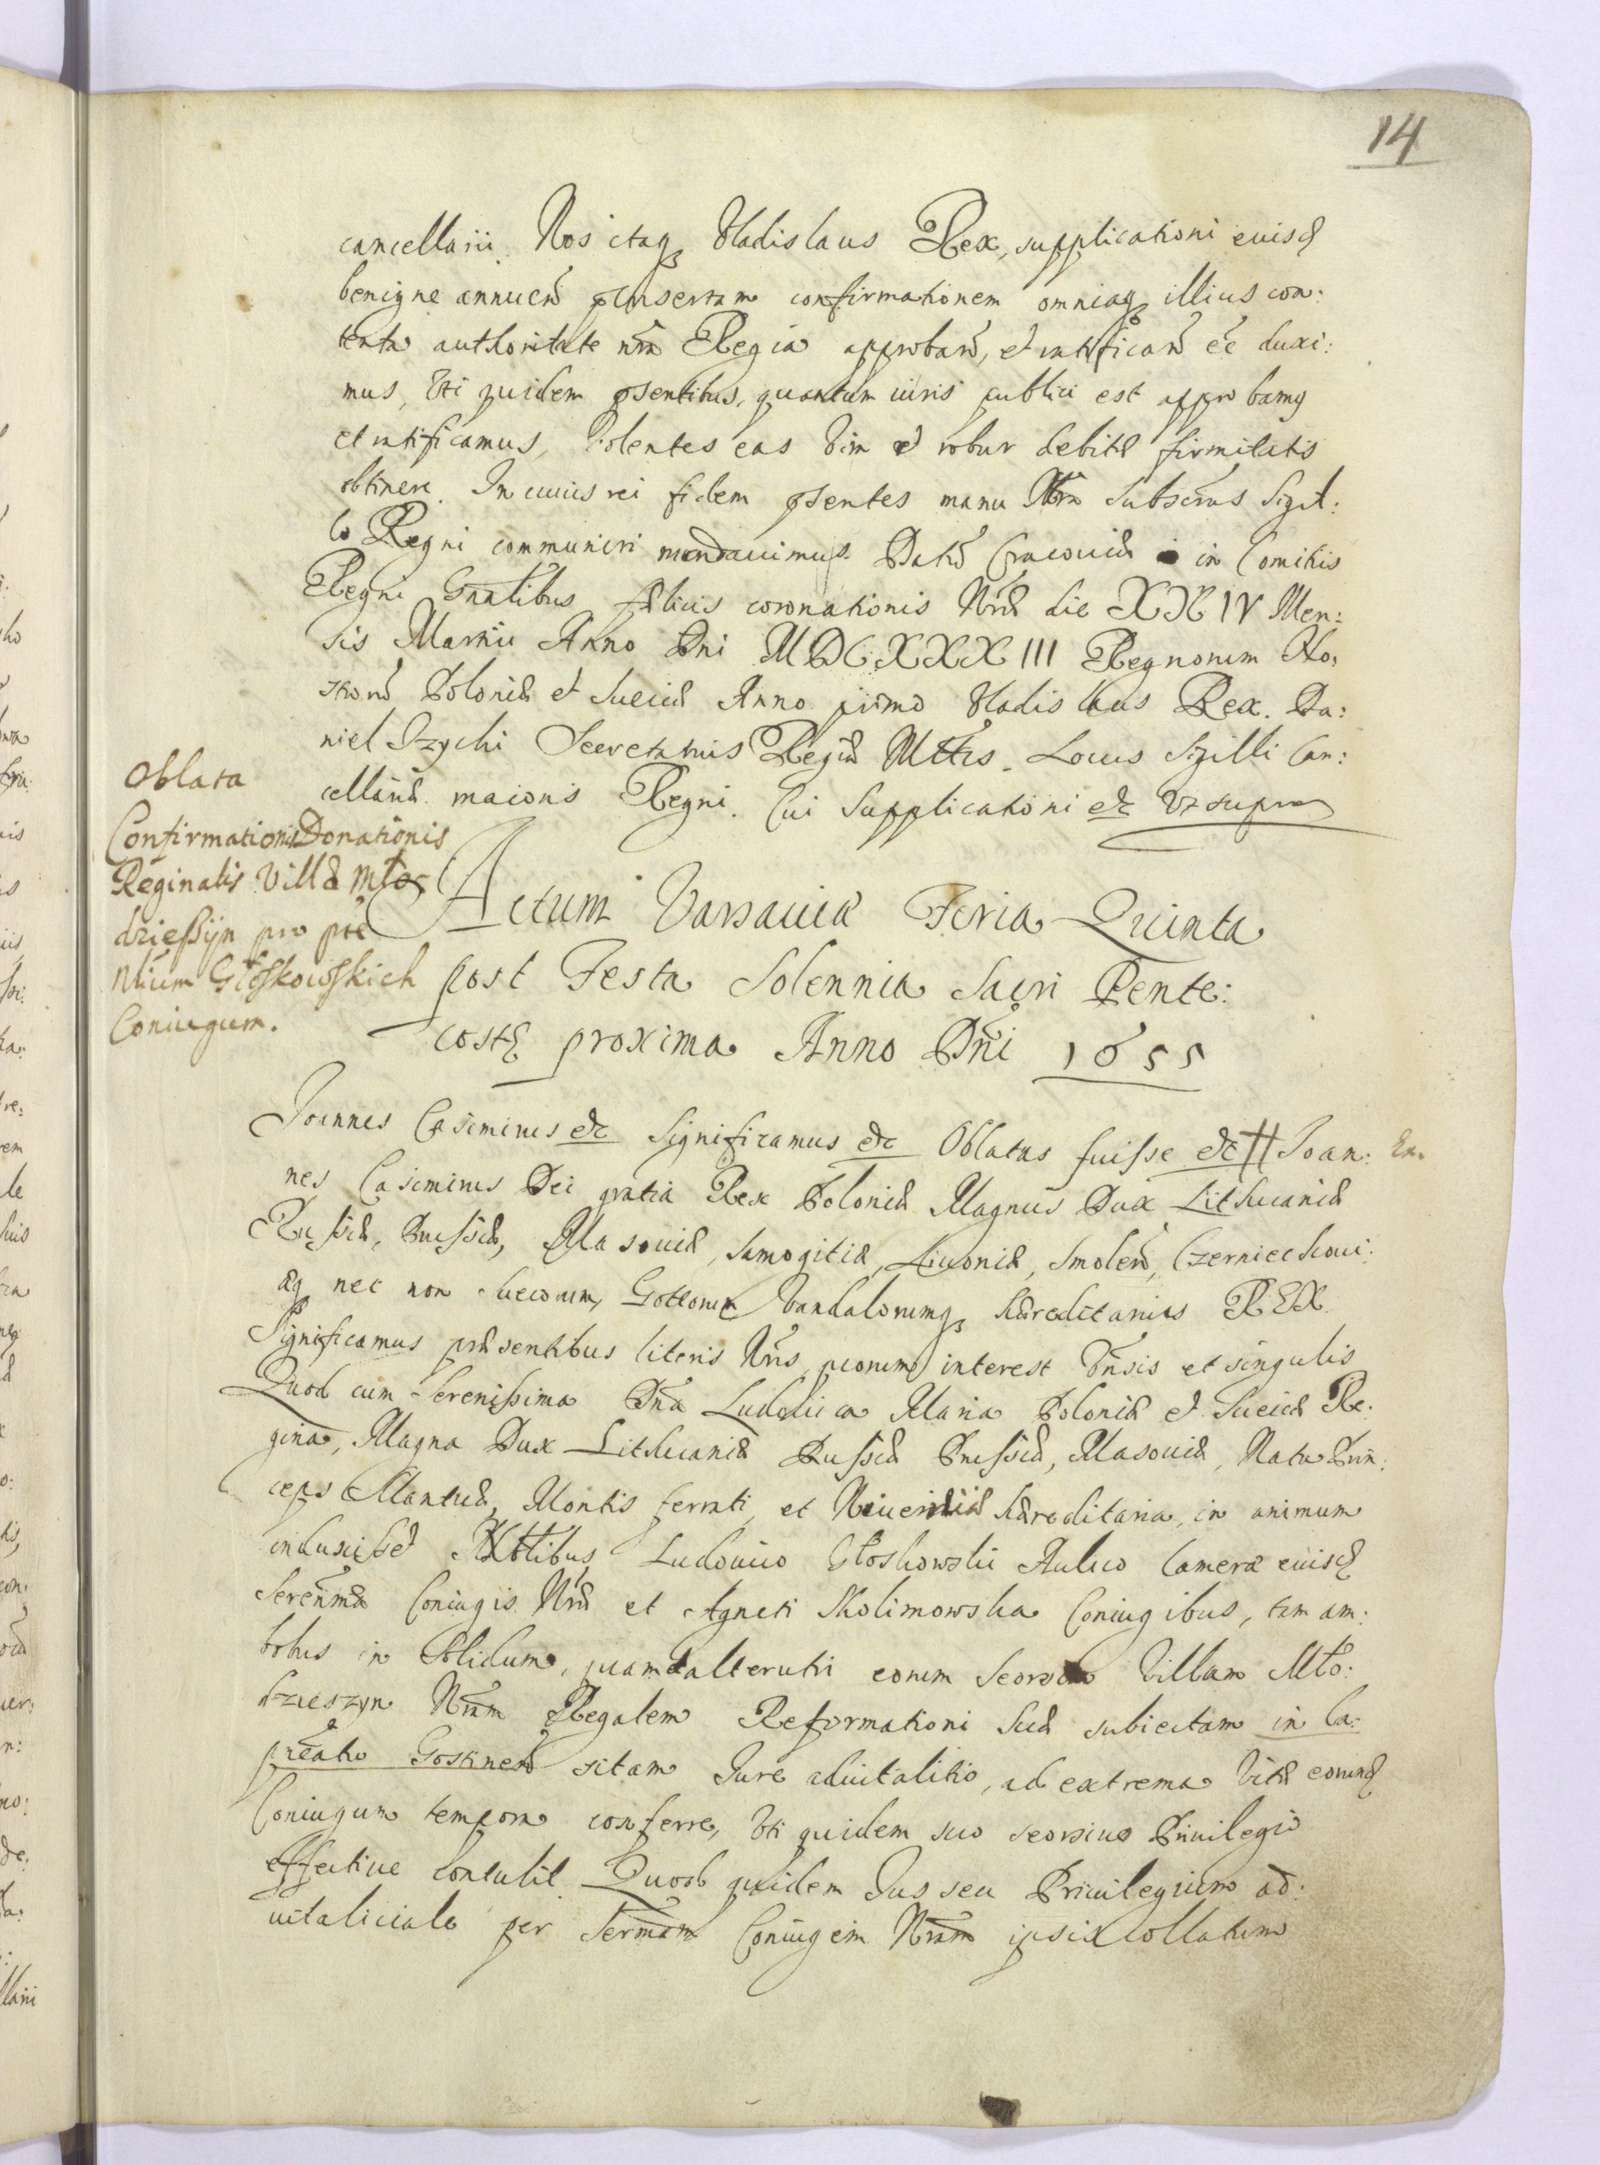 14
cancellarii. Nos itaq Vladislaus Rex, supplicationi euisd
benigne annuen pinsertam confirmationem omniaq illius con:
tenta authoritate nra Regia approban, et ratifican ee duxi:
mus, Vti quidem psentibus, quantum iuris publici est approbamq
et ratificamus, Volentes eas Vim et robur debitæ firmitatis
obtinere. In cuius rei fidem psentes manu Nra Subscrus Sigil:
lo Regni communiri mandauimus. Datu Cracouiæ in Comitiis
Regni Gnalibus fælicis coronationis Nræ die XXIV Men:
sis Martii Anno Dni MDCXXXIII Regnorum No:
stroru Poloniæ et Sueciæ Anno primo Vladislaus Rex. Da:
niel Szychi Secretarius Regiæ Mttis. Locus Sigilli Can:
cellariæ maioris Regni. Cui Supplicationi etc Vt supra
Oblata
Confirmationis Donationis
Reginalis Villæ Mło
dzieszyn pro pte
Nlium Głoskowskich
Coniugum.
Actum Varsauiæ Feria Quinta
post Festa Solennia Sacri Pente:
costes proxima Anno Dni 1655
Joannes Casimirus etc Significamus etc Oblatas fuisse etc # Joan:
nes Casimirus Dei gratia Rex Poloniæ Magnus Dux Lithuaniæ
Russiæ, Prussiæ, Masouiæ, Samogitiæ, Liuoniæ, Smolen, Czerniechoui:
æq nec non Suecorum, Gottorum Vandalorumq hæreditarius REX.
Significamus præsentibus literis Nris, quorum interest Vnsis et singulis
Quod cum Serenissima Dna Ludouica Maria Poloniæ et Sueciæ Re:
gina, Magna Dux Lithuaniæ Russiæ Prussiæ, Masouiæ, Nata Prin:
ceps Mantuæ, Montis ferrati, et Niuerniæ hæreditaria, in animum
induxisset Nobilibus Ludouico Głoskowski Aulico Cameræ euisd
Serenmæ Coniugis Nræ et Agneti Skolimowska Coniugibus, tam am:
bobus in Solidum, quam alterutri eorum Seorsim Villam Mło:
dzieszyn Nram Regalem Reformationi Suæ subiectam in Ca:
pneatu Gostinen sitam Jure aduitalitio, ad extrema Vitæ eorund
Coniugum tempora conferre, Vti quidem suo seorsiuo Priuilegio
effectiue contulit. Quod quidem Jus seu Priuilegium ad:
uitaliciale per Sermam Coniugem Nram ipsis collatum